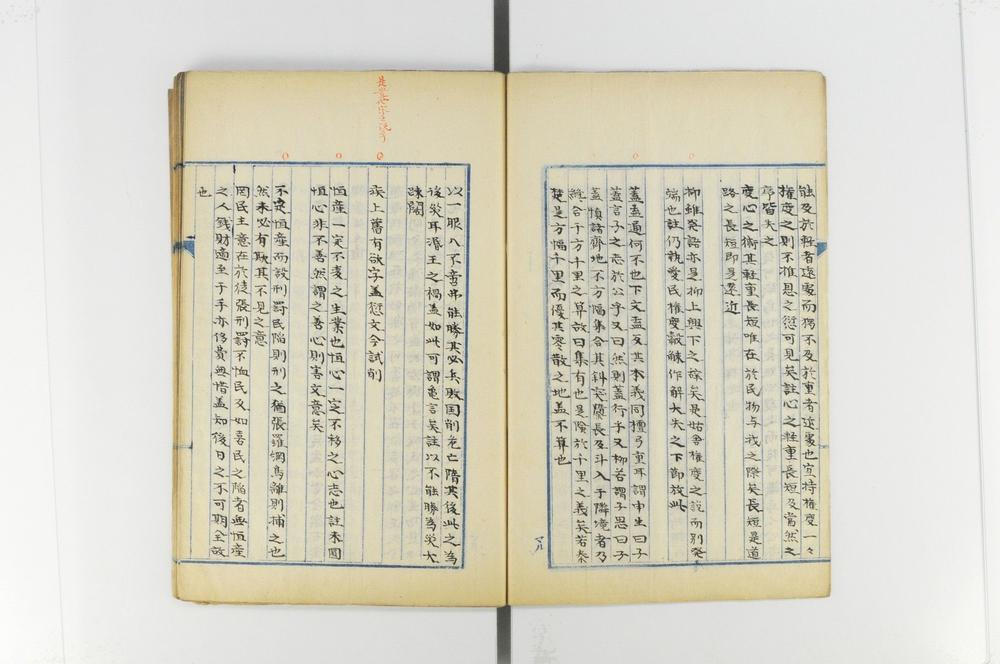 蝕及於輕者遠處而獨不及於重者遠處也宜持權度一々
權度之則不推恩之愆可見矣註心之輕重長短及當然之
序皆失之
度心之術其輕重長短唯在於民物与我之際矣長短是道
路之長短即是遠近
抑雖癸語亦是抑上興下之辞矣是姑舍權度之說而別発
端也註仍執愛民權度觳觫作解大失之下節放此
蓋盍通何不也下文盍反其本義同檀弓重耳謂申生曰子
蓋言子之志於公乎又曰然則蓋行乎又抑若謂子思曰子
蓋慎諸齊地不方幅集合其斜突隆長及斗入于隣境者乃
終合于方千里之算故曰集有也是険於千里之義矣若秦
楚是方幅千里而優其零散之地蓋不算也
以一服八了啻弗能勝其必兵敗国削危亡隋其後此之為
後災耳湣王之禍蓋如此可謂亀言矣註以不能勝為災大
疎闊
疾上舊有欲字蓋愆文今試削
恒産一定不变之生業也恒心一定不移之心志也註未圓
恒心非不善然謂之善心則害文意矣
不定恒産而設刑罰民陥則刑之猶張羅網鳥離則捕之也
然未必有欺其不見之意
罔民主意在於徒張刑罰不恤民又如喜民之陥者無恒産
之人錢財適至于手亦侈費無惜蓋知後日之不可期全故
也